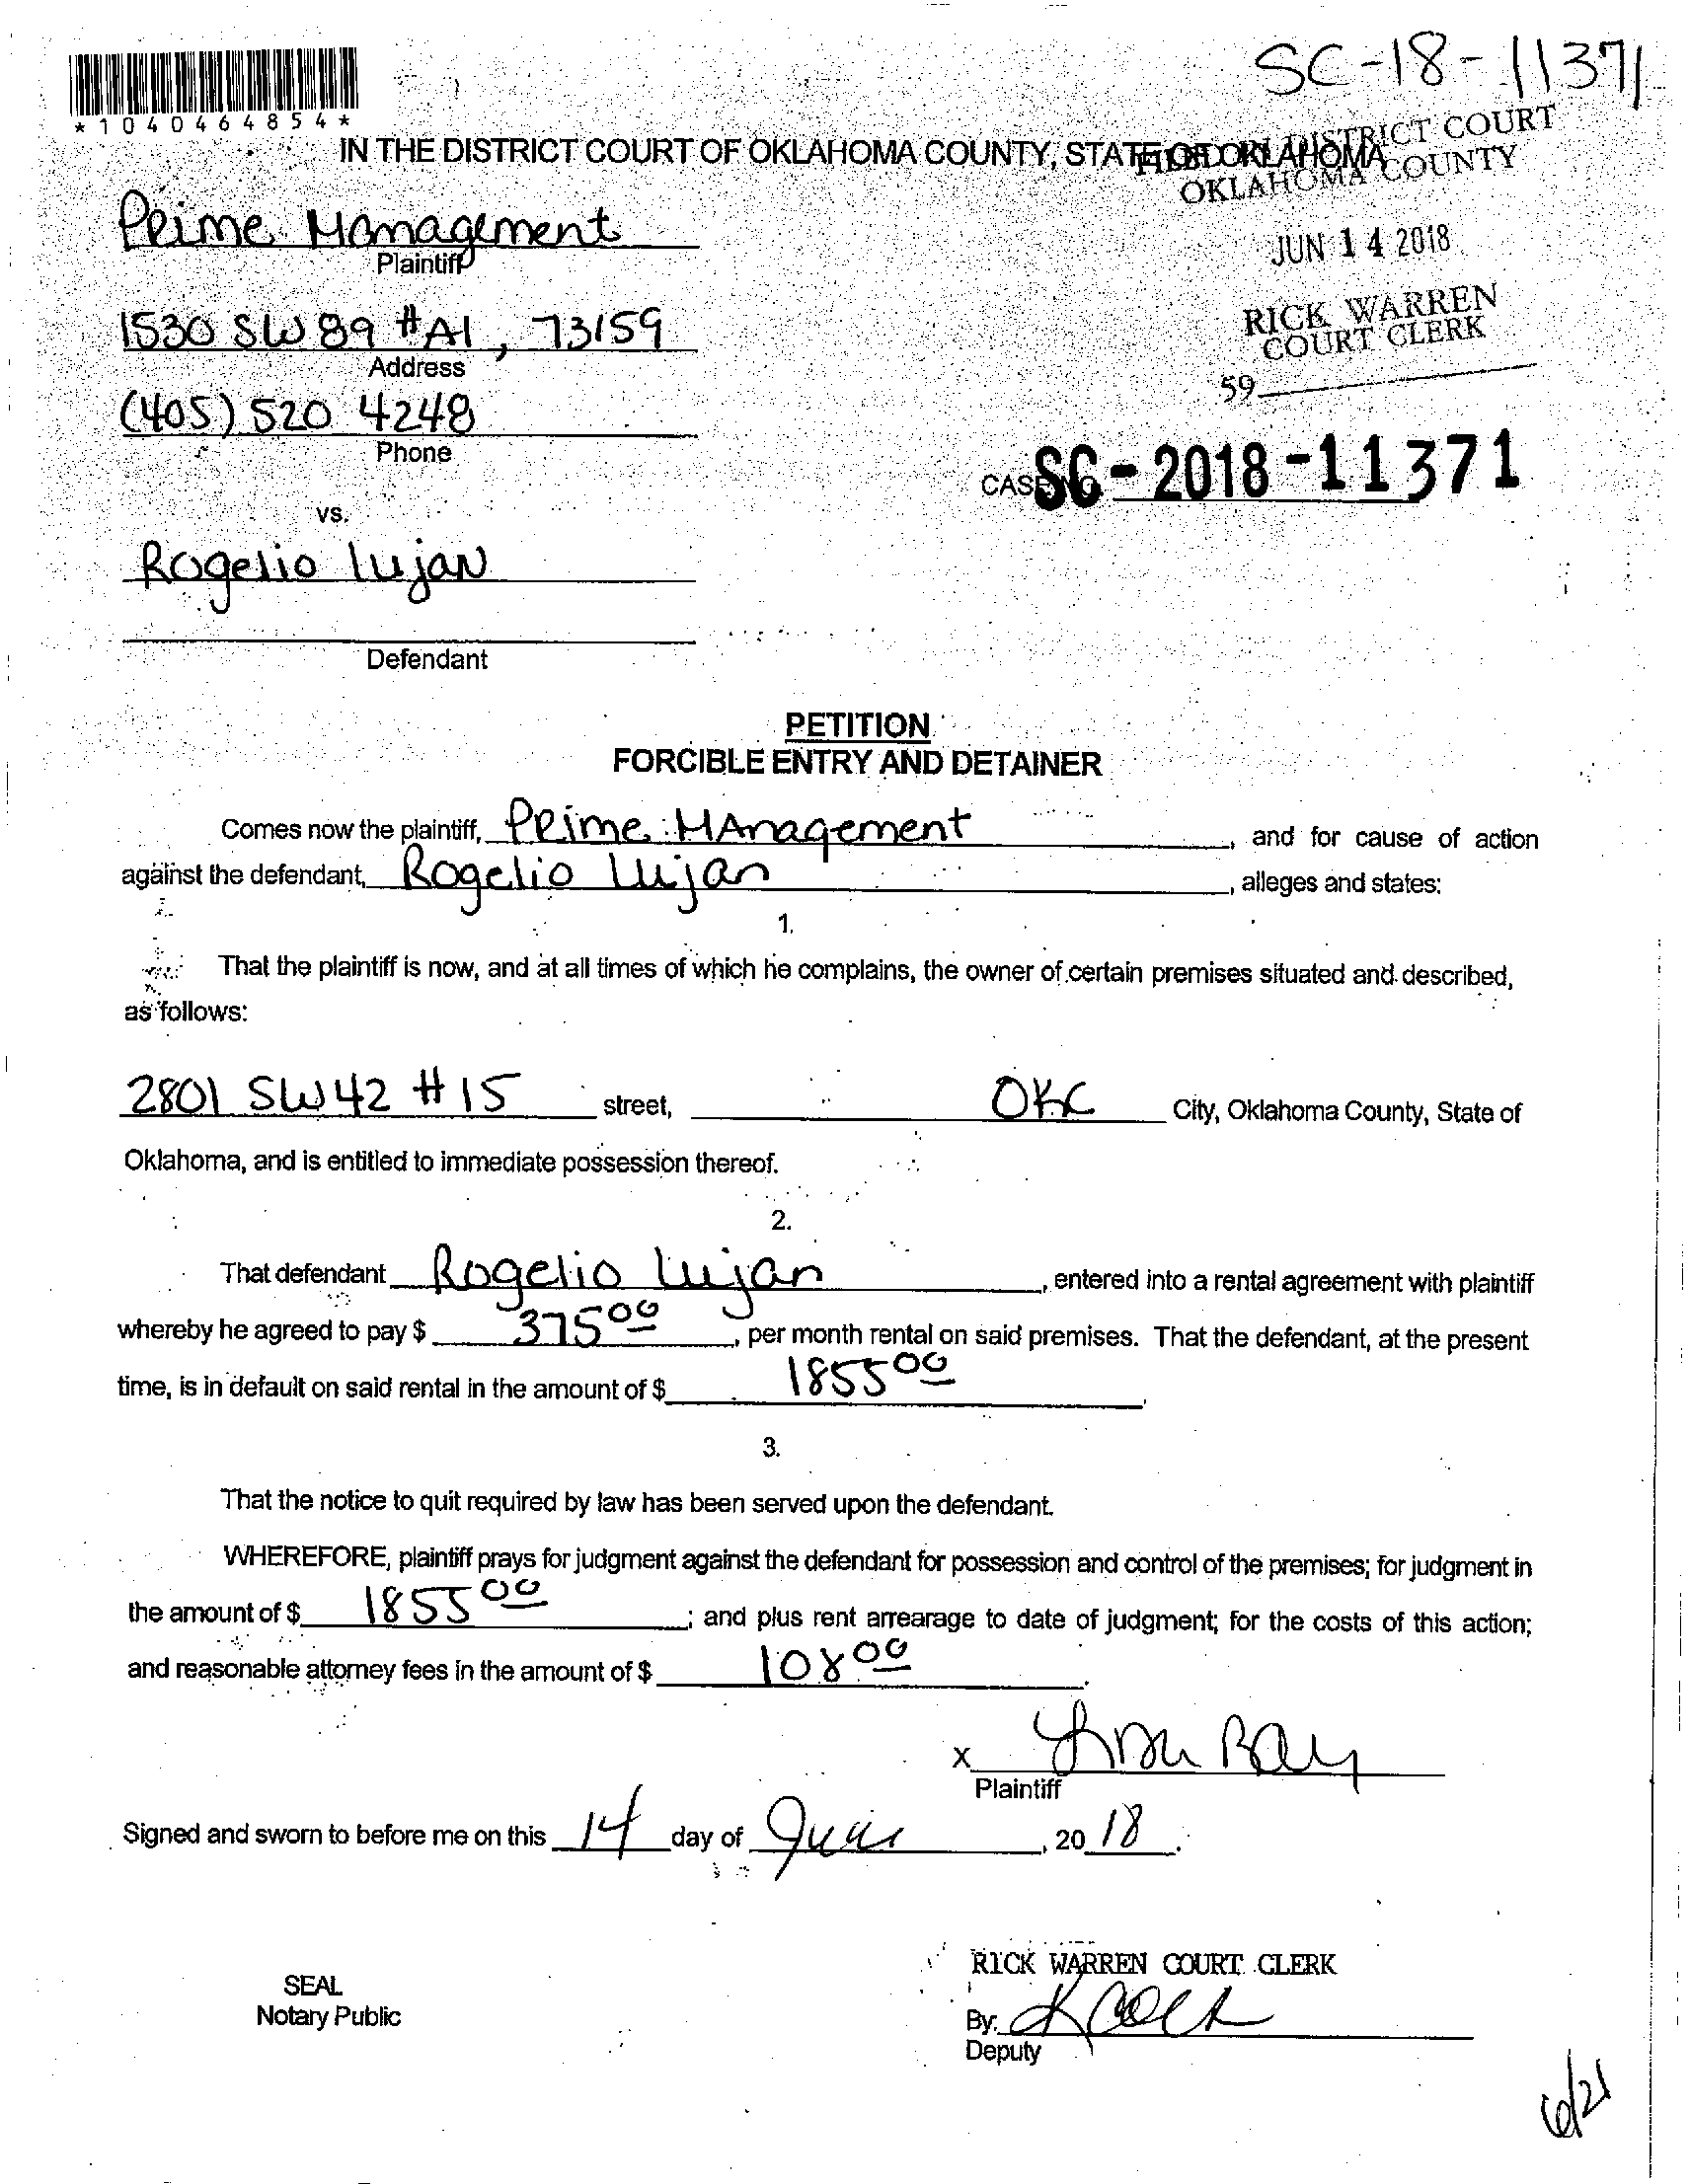 SC-18-11371
*1040464854*
IN THE DISTRICT COURT OF OKLAHOMA COUNTY, STATE OF OKLAHOMA
FILED IN DISTRICT COURT
OKLAHOMA COUNTY
Prime Management
Plaintiff
JUN 14 2018
1530 SW 89 #A1, 73159
Address
RICK WARREN
COURT CLERK
59
(405) 520 4248
Phone
CASE NO. SC-2018-11371
vs.
Rogelio Lujan
Defendant
PETITION
FORCIBLE ENTRY AND DETAINER
Comes now the plaintiff, Prime Management, and for cause of action
against the defendant, Rogelio Lujan, alleges and states:
1.
That the plaintiff is now, and at all times of which he complains, the owner of certain premises situated and described,
as follows:
2801 SW 42 #15 street, OKC City, Oklahoma County, State of
Oklahoma, and is entitled to immediate possession thereof.
2.
That defendant Rogelio Lujan, entered into a rental agreement with plaintiff
whereby he agreed to pay $ 375 00, per month rental on said premises. That the defendant, at the present
time, is in default on said rental in the amount of $ 1855 00.
3.
That the notice to quit required by law has been served upon the defendant.
WHEREFORE, plaintiff prays for judgment against the defendant for possession and control of the premises; for judgment in
the amount of $ 1855 00; and plus rent arrearage to date of judgment; for the costs of this action;
and reasonable attorney fees in the amount of $ 108 00.
x
Plaintiff
Signed and sworn to before me on this 14 day of June, 20 18.
RICK WARREN COURT CLERK
SEAL
Notary Public
By:
Deputy
6/21